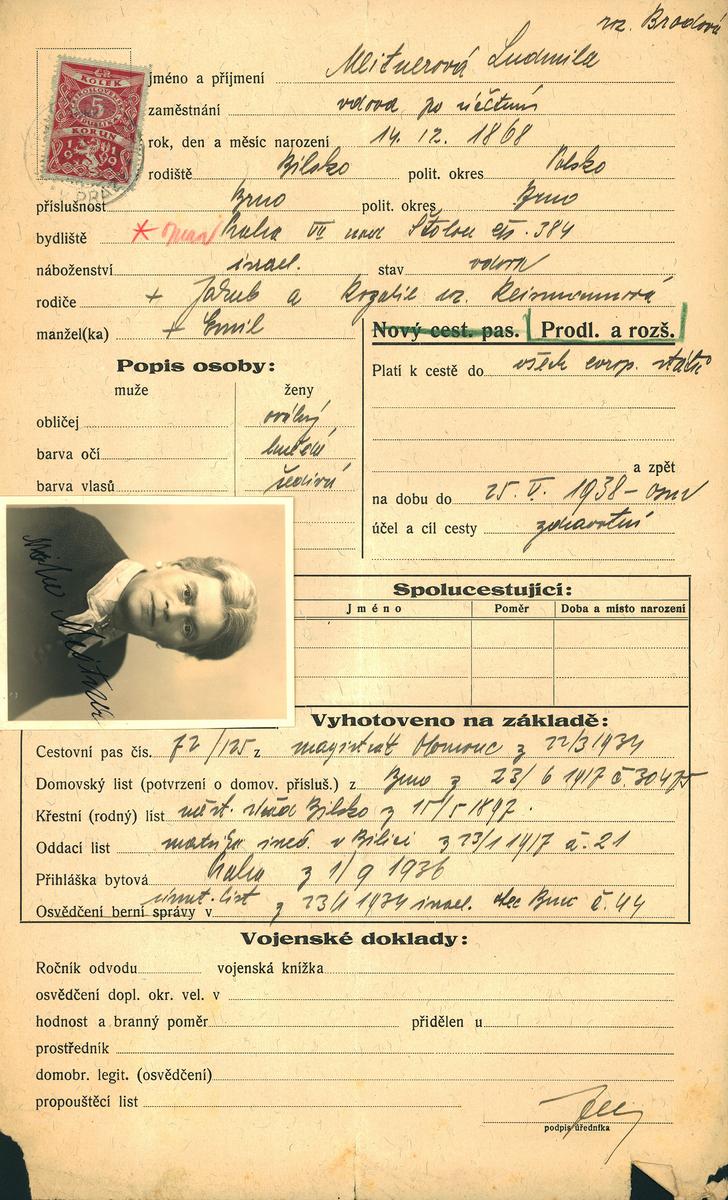 roz. Brodová
KOLEK
5
KORUN
1919
jméno a příjmení Meitnerová Ludmila
zaměstnání vdova po účetním
rok, den a měsíc narození 14. 12. 1868
rodiště Bílsko polit. okres Polsko
příslušnost Brno polit. okres Brno
bydliště * Praha VII čp. 384
náboženství israel. stav vdova
rodiče + Jakub a Rozalie roz.
manžel(ka) + Emil
Nový cest. pas. Prodl. a rozš.
Popis osoby:
muže ženy
Platí k cestě do všech evrop. států
obličej oválný
barva očí hnědé
barva vlasů šedivá
a zpět
na dobu do 25. V. 1938
účel a cíl cesty zdravotní
Spolucestující:
Jméno Poměr Doba a místo narození
Vyhotoveno na základě:
Cestovní pas čís. 72/125 z magistrát Olomouc z 22/3 1934
Domovský list (potvrzení o domov. přísluš.) z Brno z 23/6 1917 č. 30475
Křestní (rodný) list Bílsko z 15/5 1897.
Oddací list z 23/1 1917 č. 21
Přihláška bytová Praha z 1/9 1936
úmrt. list
Osvědčení berní správy v z 23/1 1934 israel. obec Brno č. 44
Vojenské doklady:
Ročník odvodu vojenská knížka
osvědčení dopl. okr. vel. v
hodnost a branný poměr přidělen u
prostředník
domobr. legit. (osvědčení)
propouštěcí list
podpis úředníka